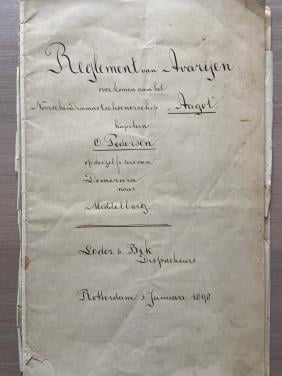 Reglement van Avarijen
overkomen aan het
Noorsche Driemastschoenerschip "Aagot"
kapitein
O. Pedersen
op deszelfs reis van
Demerara
naar
Middelburg
Loder & Bik
Dispacheurs
Rotterdam Januari 1898